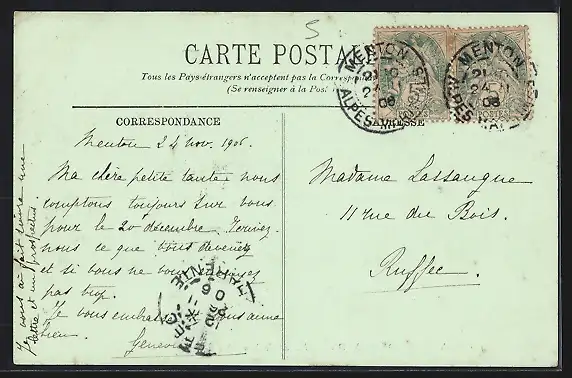 5
CARTE POSTALE
Tous les Pays étrangers n'acceptent pas la Correspon
(Se renseigner à la Pos
MENTON
21
24
06
ALPES-M
MENTON
21
24
06
CORRESPONDANCE
ADRESSE
Menton 24 nov. 1906.
Ma chère petite tante, nous
comptons toujours sur vous
pour le 20 décembre. Ecrivez
nous ce que vous devenez
et si vous ne vous
pas trop.
Je vous embrasse
bien.
Je vous ai fait suivre une
lettre et un prospectus.
CHARENTE
Madame Lassangue
11 rue du Bois.
Ruffec.